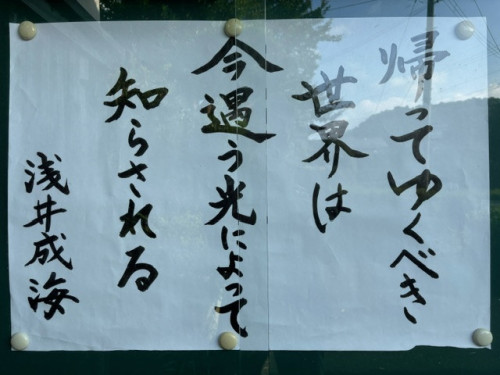 帰ってゆくべき
世界は
今遇う光によって
知らされる
浅井成海